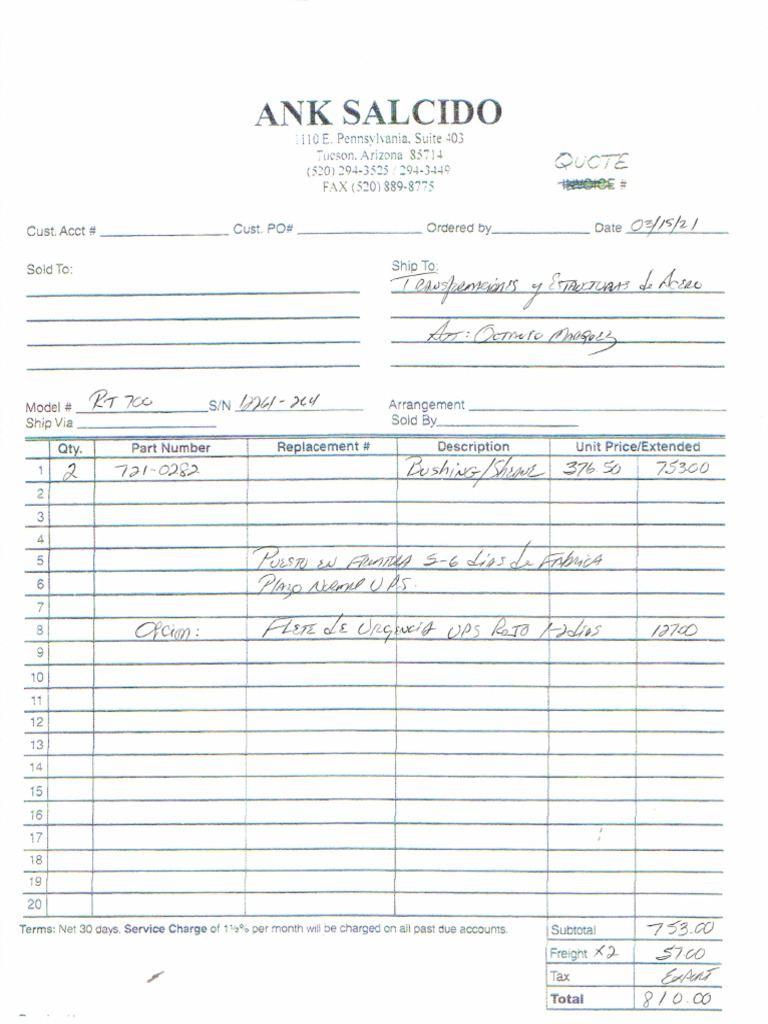 ANK SALCIDO
1110 E. Pennsylvania, Suite 403
Tucson, Arizona 85714
(520) 294-3525 / 294-3449
FAX (520) 889-8775
QUOTE
INVOICE #
Cust. Acct # Cust. PO# Ordered by Date 03/15/21
Sold To: Ship To:
Transformaciones y Estructuras de Acero
Att: Octavio Marquez
Model # RT 700 S/N 12261-264 Arrangement
Ship Via Sold By
Qty. Part Number Replacement # Description Unit Price/Extended
1 2 721-0282 Bushing/ 376.50 753.00
2
3
4
5 Puesto en Frontera 5-6 dias de Fabrica
6 Plazo Normal UPS.
7
8 Opcion: Flete de Urgencia UPS Rojo 1-2 dias 127.00
9
10
11
12
13
14
15
16
17
18
19
20
Terms: Net 30 days. Service Charge of 1½% per month will be charged on all past due accounts. Subtotal 753.00
Freight X2 57.00
Tax Export
Total 810.00